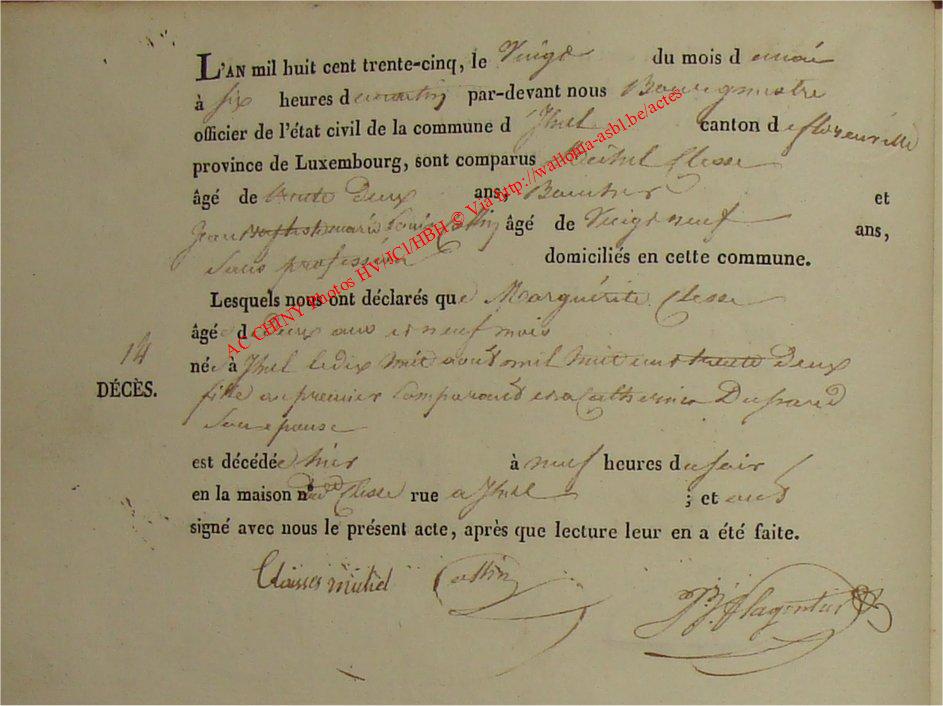 L'AN mil huit cent trente-cinq, le Vingt du mois d e mai
à six heures d u matin par-devant nous Bourgmestre
officier de l'état civil de la commune d' Izel canton d e florenville
province de Luxembourg, sont comparus Michel Clesse
âgé de trente deux ans, et
Jean marie Louis Collin âgé de Vingt neuf ans,
Sans profession domiciliés en cette commune.
Lesquels nous ont déclarés que Marguérite Clesse
âgée de Deux ans et neuf mois
14
DÉCÈS.
née à Izel le dix huit août mil huit cent trente Deux
fille au premier Comparant et a Catherine
Son epouse
est décédée hier à neuf heures du soir
en la maison n° de Clesse rue a Izel ; et ont
signé avec nous le présent acte, après que lecture leur en a été faite.
Claisses michel Collin
AC CHINY Photos HV/JCl/HBH © Via http://wallonia-asbl.be/actes